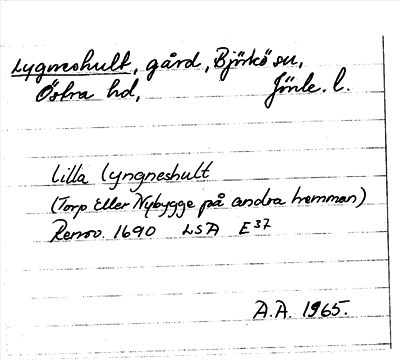 Lygneshult, gård, Björkö sn,
Östra hd, Jönk. l.
Lilla Lyngneshult
(Torp Eller Nybygge på andra hemman)
Renov. 1690 LSA E 37
A.A. 1965.